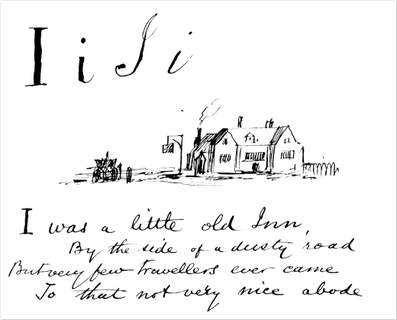 I i I i
I was a little old Inn,
By the side of a dusty road
But very few travellers ever came
To that not very nice abode